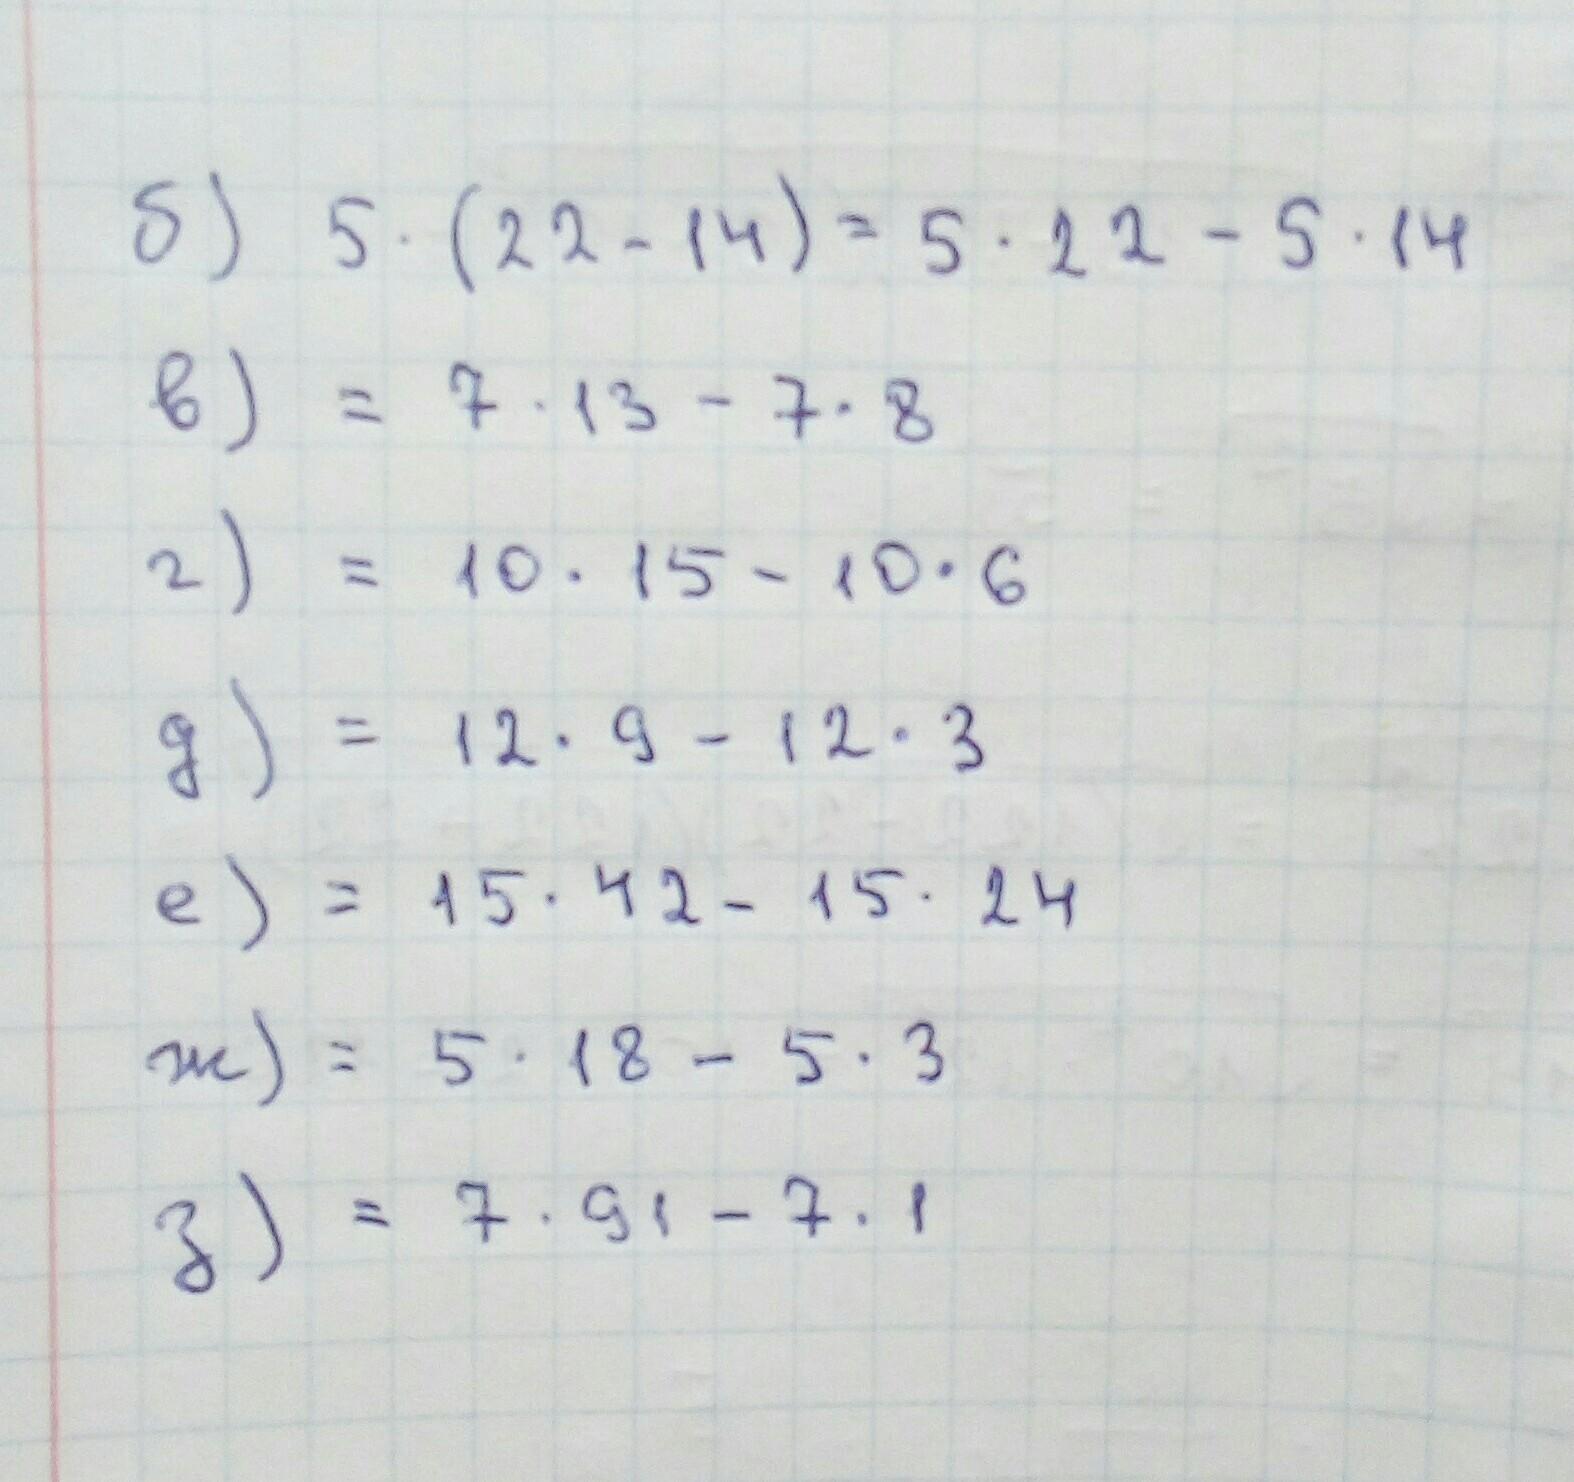 б) 5 · (22 - 14) = 5 · 22 - 5 · 14
в) = 7 · 13 - 7 · 8
г) = 10 · 15 - 10 · 6
д) = 12 · 9 - 12 · 3
е) = 15 · 42 - 15 · 24
ж) = 5 · 18 - 5 · 3
з) = 7 · 91 - 7 · 1